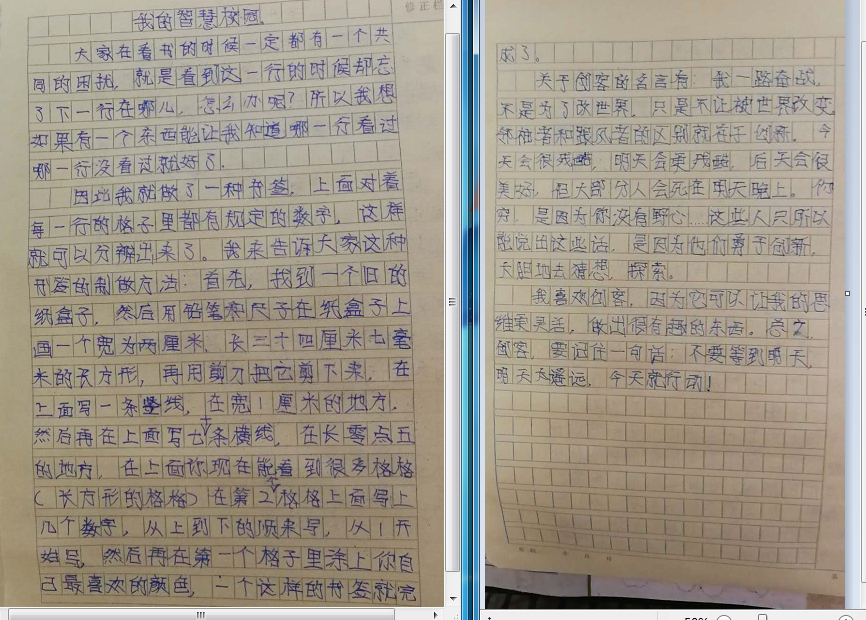 我的智慧校园
大家在看书的时候一定都有一个共
同的困扰，就是看到这一行的时候却忘
了下一行在哪儿，怎么办呢？所以我想
如果有一个东西能让我知道哪一行看过
哪一行没看过就好了。
因此我就做了一种书签，上面对着
每一行的格子里都有规定的数字，这样
就可以分辨出来了。我来告诉大家这种
书签的制做方法：首先，找到一个旧的
纸盒子，然后用铅笔和尺子在纸盒子上
画一个宽为两厘米，长三十四厘米七毫
米的长方形，再用剪刀把它剪下来，在
上面写一条竖线，在宽1厘米的地方，
然后再在上面写七条横线，在长零点五
的地方，在上面你现在能看到很多格格
（长方形的格格）在第2格格上面写上
几个数字，从上到下的顺来写，从1开
始写，然后再在第一个格子里涂上你自
己最喜欢的颜色，一个这样的书签就完
成了。
关于创客的名言有：我一路奋战，
不是为了改世界，只是不让被世界改变。
领袖者和跟风者的区别就在于创新。今
天会很残酷，明天会更残酷，后天会很
美好，但大部分人会死在明天晚上。你
穷，是因为你没有野心……这些人只所以
能说出这些话，是因为他们勇于创新，
大胆地去猜想，探索。
我喜欢创客，因为它可以让我的思
维更灵活，做出很有趣的东西。总之，
创客，要记住一句话：不要等到明天，
明天太遥远，今天就行动！